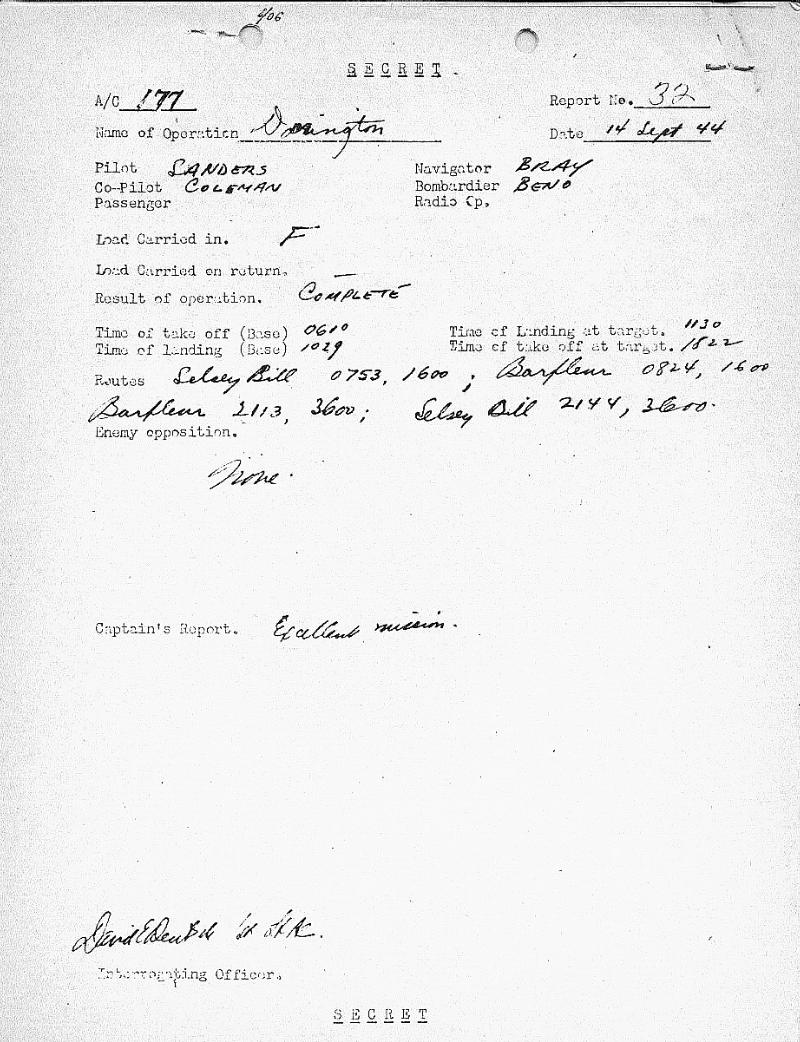 406
SECRET.
A/C 177 Report No. 32
Name of Operation Date 14 Sept 44
Pilot SANDERS Navigator BRAY
Co-Pilot COLEMAN Bombardier BENO
Passenger Radio Op.
Load Carried in. F
Load Carried on return. —
Result of operation. COMPLETE
Time of take off (Base) 0610 Time of Landing at target. 1130
Time of landing (Base) 1029 Time of take off at target. 1822
Routes Selsey Bill 0753, 1600 ; Barfleur 0824, 1600
Barfleur 2113, 3600; Selsey Bill 2144, 3600.
Enemy opposition.
None.
Captain's Report. Excellent mission.
David E
Interrogating Officer.
SECRET